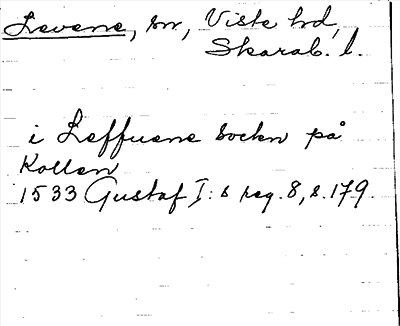 Levene, sn, Viste hd,
Skarab. l.
i Leffuene socken på
Kollen
1533 Gustaf I:s reg. 8, s. 179.